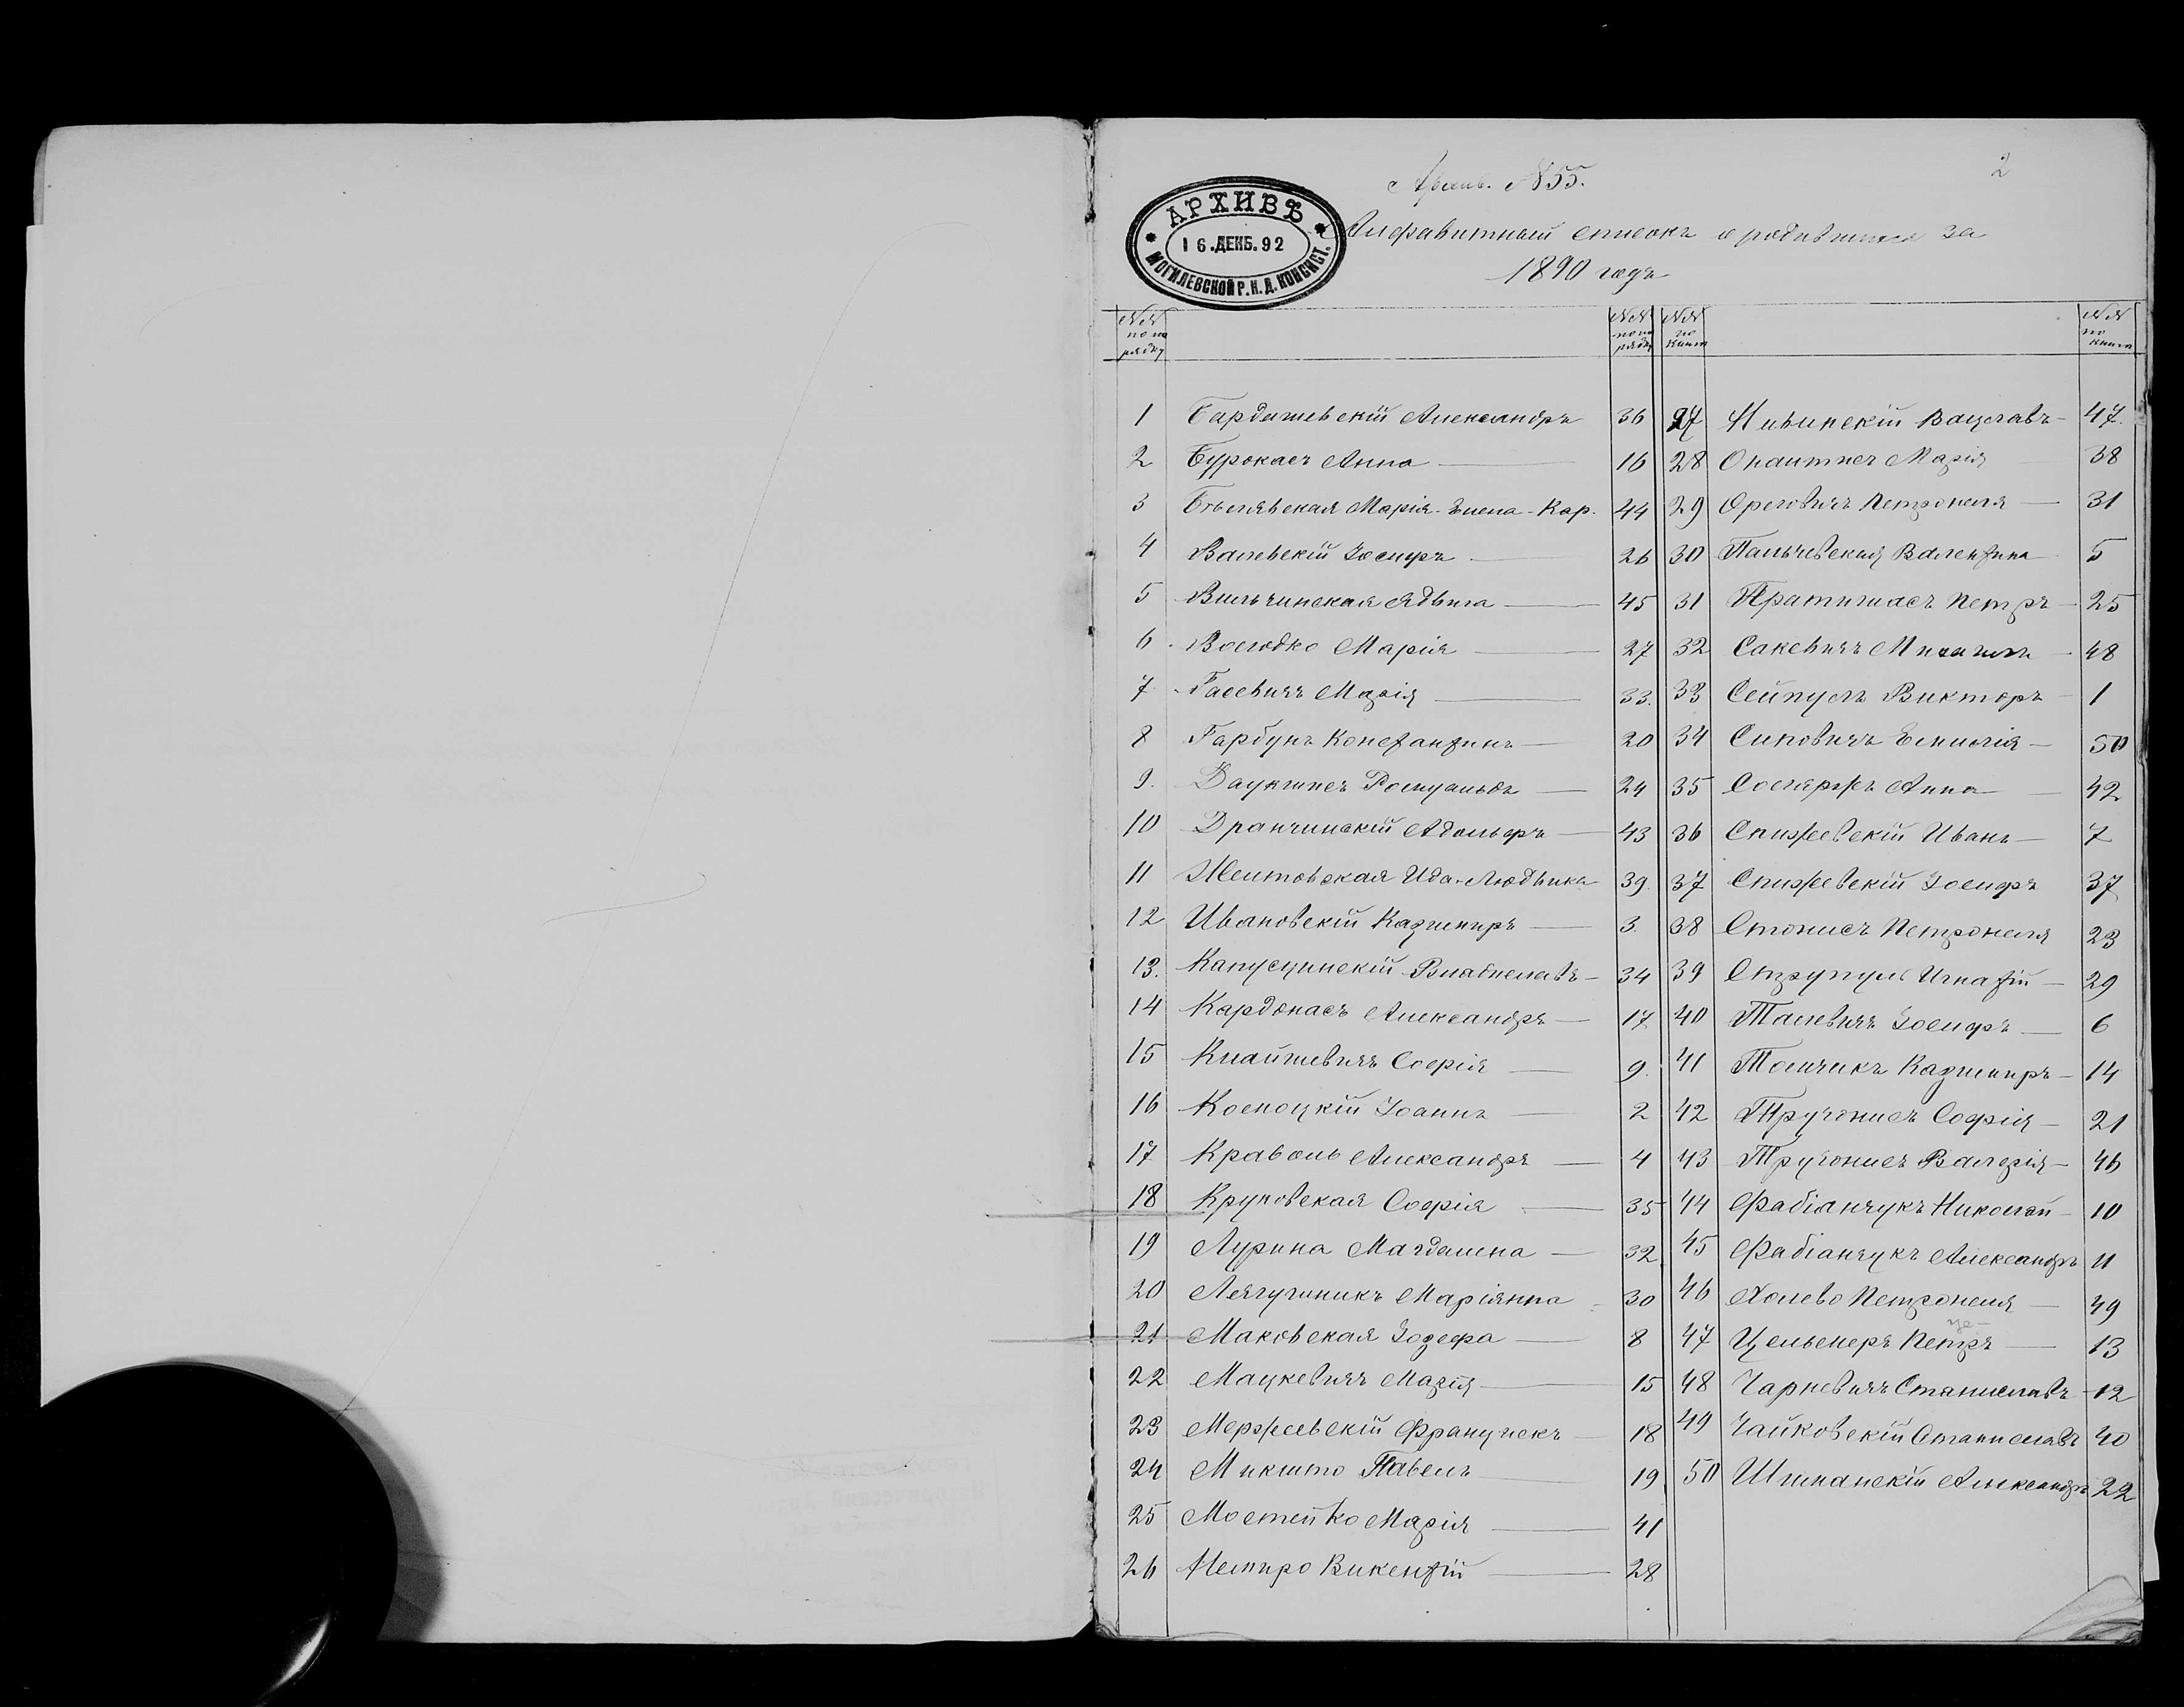 2
Архив. №55.
АРХИВЪ
16.ДЕКБ.92
МОГИЛЕВСКОЙ Р.К.Д. КОНСИСТ.
Алфавитный списокъ о родившихся за
1890 годъ
№№ по порядку
№№ по порядку
№№ по книги
№№ по книги
1 Бардишевскій Александръ 36
2 Бурокасъ Анна 16
3 Бѣлявская Марія-Элена-Кар. 44
4 Валевскій Іосифъ 26
5 Вильчинская Ядвига 45
6 Володко Марія 27
7 Гасевичъ Марія 33.
8 Гарбунъ Константинъ 20
9. Даукшисъ Ромуальдъ 24
10 Дранчинскій Адольфъ 43
11 Желтовская Ида-Людвика 39.
12 Ивановскій Казимиръ 3.
13. Капусцинскій Владиславъ 34
14 Кардонасъ Александръ 17
15 Кнайшевичъ Софія 9.
16 Космоцкій Іоаннъ 2
17 Краволь Александръ 4
18 Круковская Софія 35
19 Лурина Магдалена 32
20 Лягушникъ Маріянна 30
21 Маковская Іозефа 8
22 Мацкевичъ Марія 15
23 Мержеевскій Францишекъ 18
24 Микшто Павелъ 19
25 Мостейко Марія 41
26 Немиро Викентій 28
27 Нивинскій Вацлавъ 47.
28 Опаитисъ Марія 38
29 Ореховичъ Петронеля 31
30 Пальчевская Валентина 5
31 Пратишасъ Петръ 25
32 Сакевичъ Михаилъ 48
33 Сейпусъ Викторъ 1
34 Сиповичъ Емилія 50
35 Соляржъ Анна 42
36 Спижеевскій Иванъ 7
37 Спижеевскій Іосифъ 37
38 Стонисъ Петронеля 23
39 Струпуль Игнатій 29
40 Талевичъ Іосифъ 6
41 Томчикъ Казимиръ 14
42 Тручонисъ Софія 21
43 Тручонисъ Валерія 46
44 Фабіанчукъ Николай 10
45 Фабіанчукъ Александръ 11
46 Холево Петронеля 49
47 Цельенеръ Петръ 13
48 Чарневичъ Станиславъ 12
49 Чайковскій Станиславъ 40
50 Шпанскій Александръ 22